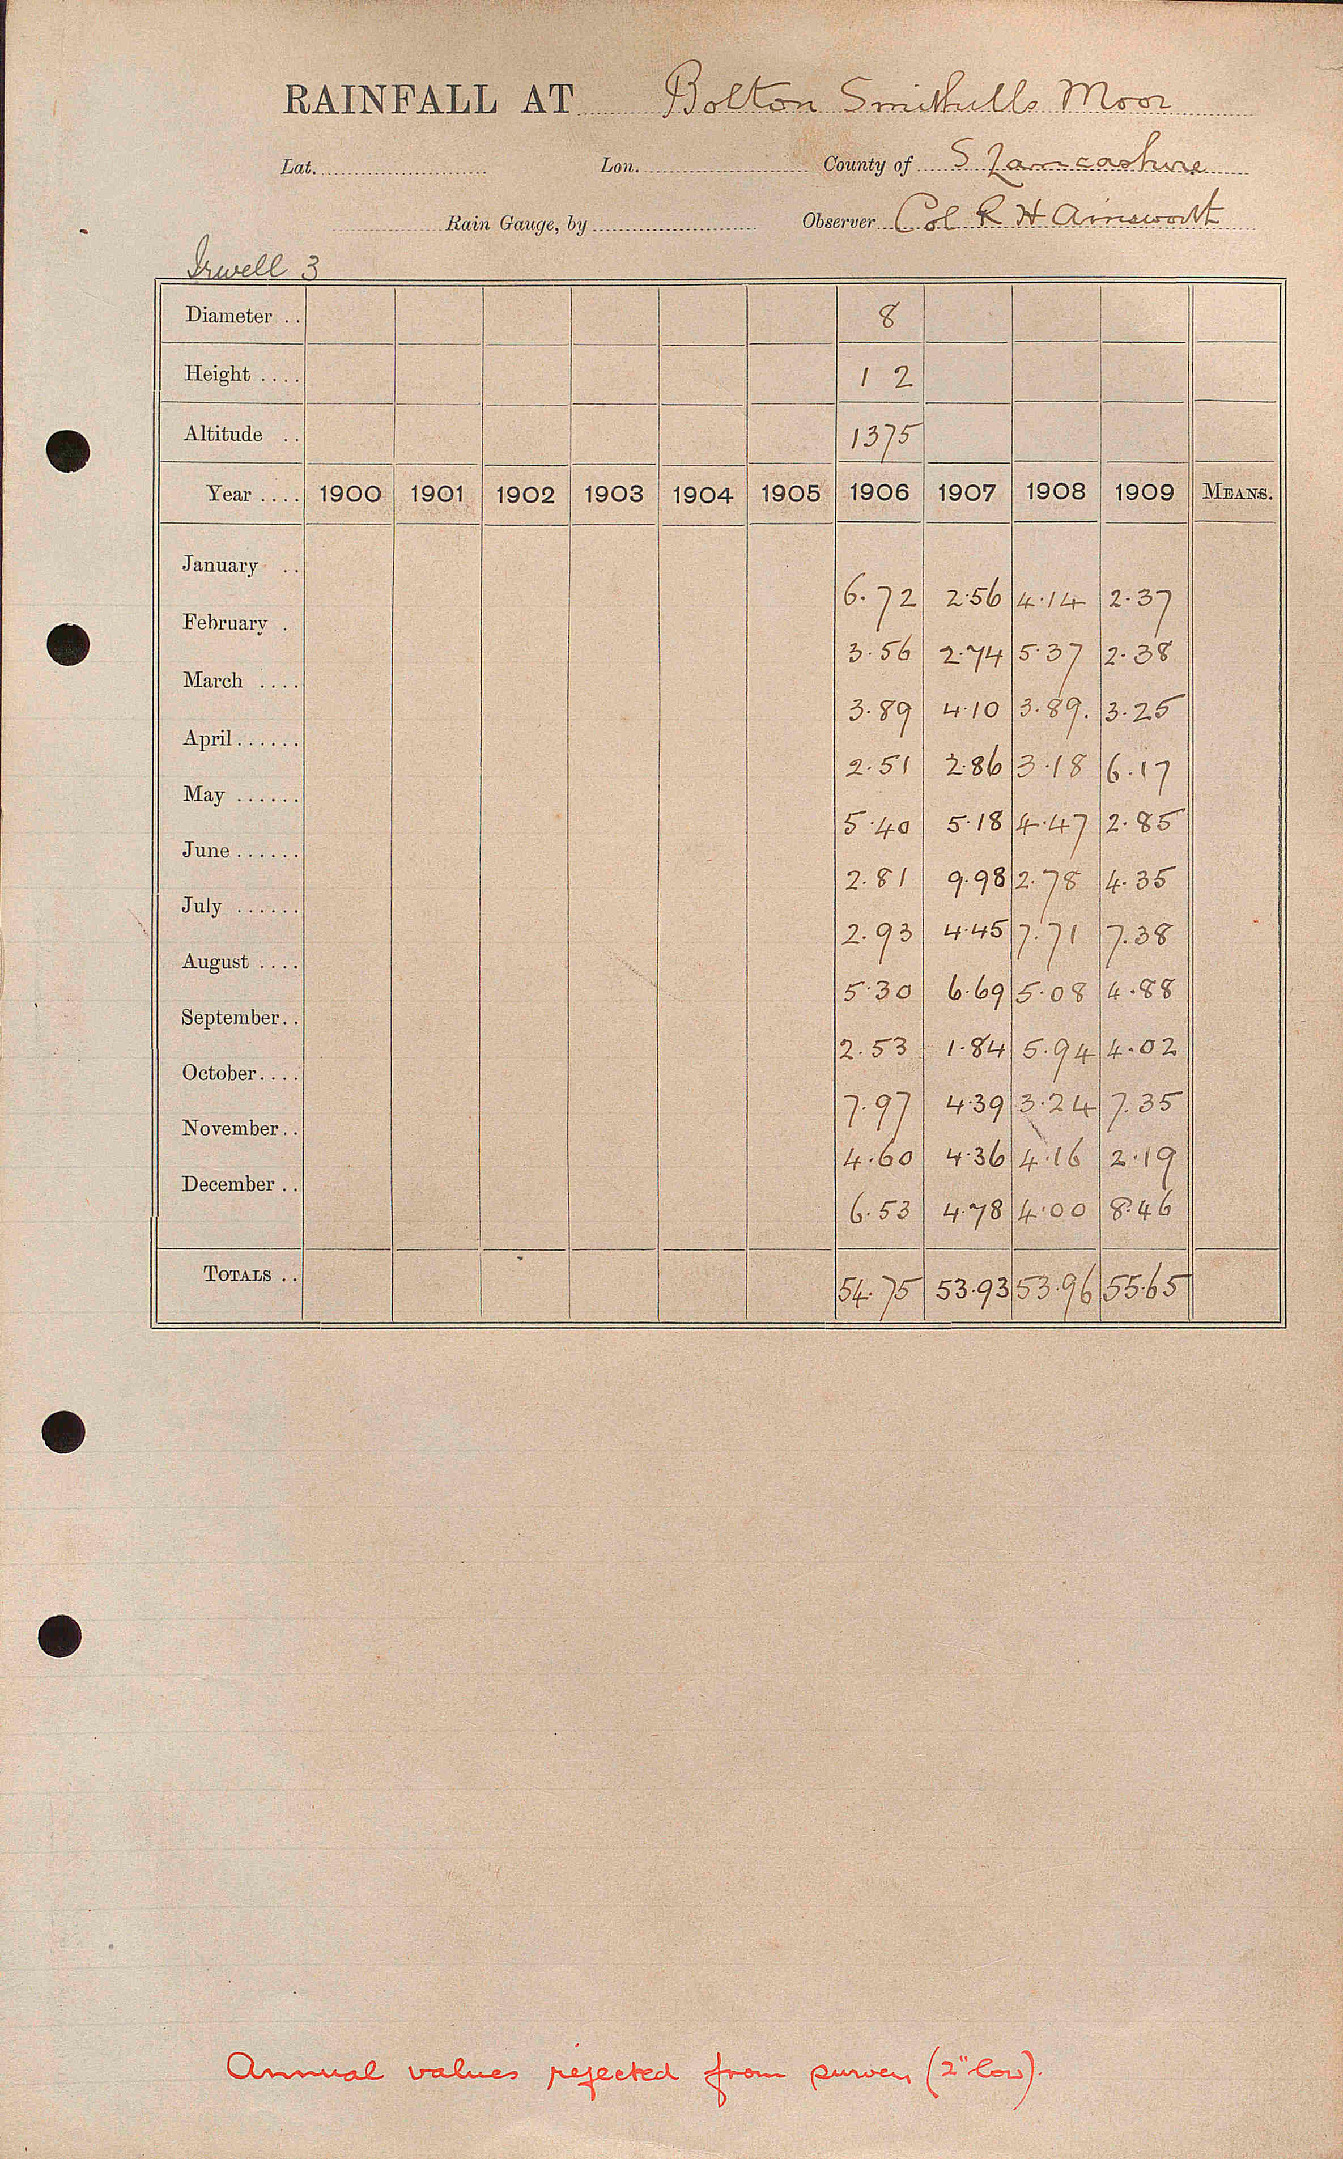 RAINFALL AT Bolton Smithills Moor
Lat. Lon. County of S Lancashire
Rain Gauge, by Observer Col R H Ainsworth
Irwell 3
Diameter .. 8
Height .... 1 2
Altitude .. 1375
Year .... 1900 1901 1902 1903 1904 1905 1906 1907 1908 1909 MEANS.
January .. 6.72 2.56 4.14 2.37
February . 3.56 2.74 5.37 2.38
March .... 3.89 4.10 3.89. 3.25
April ...... 2.51 2.86 3.18 6.17
May ...... 5.40 5.18 4.47 2.85
June ...... 2.81 9.98 2.78 4.35
July ...... 2.93 4.45 7.71 7.38
August .... 5.30 6.69 5.08 4.88
September.. 2.53 1.84 5.94 4.02
October.... 7.97 4.39 3.24 7.35
November.. 4.60 4.36 4.16 2.19
December .. 6.53 4.78 4.00 8.46
TOTALS .. 54.75 53.93 53.96 55.65
Annual values rejected from survey (2" low).